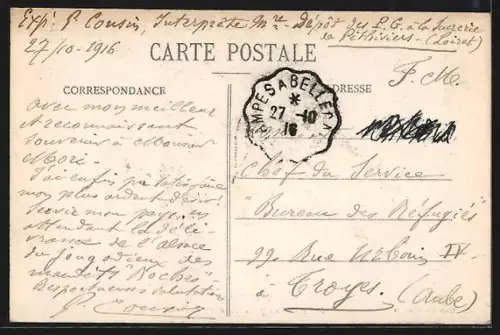 Exp. P. Cousin, Interprète Mre - Dépôt des P. G. à la Sucrerie
27/10-1916
de Pithiviers - (Loiret)
CARTE POSTALE
F. M.
CORRESPONDANCE
ADRESSE
ETAMPES A BELLEGA
*
27 - 10
16
avec mon meilleur
et reconnaissant
souvenir à Monsieur
J'ai enfin pu satisfaire
mon plus ardent désir:
Servir mon pays, en
attendant la déli-
vrance de l'Alsace
du joug odieux des
maudits "Boches"
Respectueuse salutation
P. Cousin
Chef du Service
"Bureau des Réfugiés"
99 Rue Urbain IV
à Troyes.
(Aube)